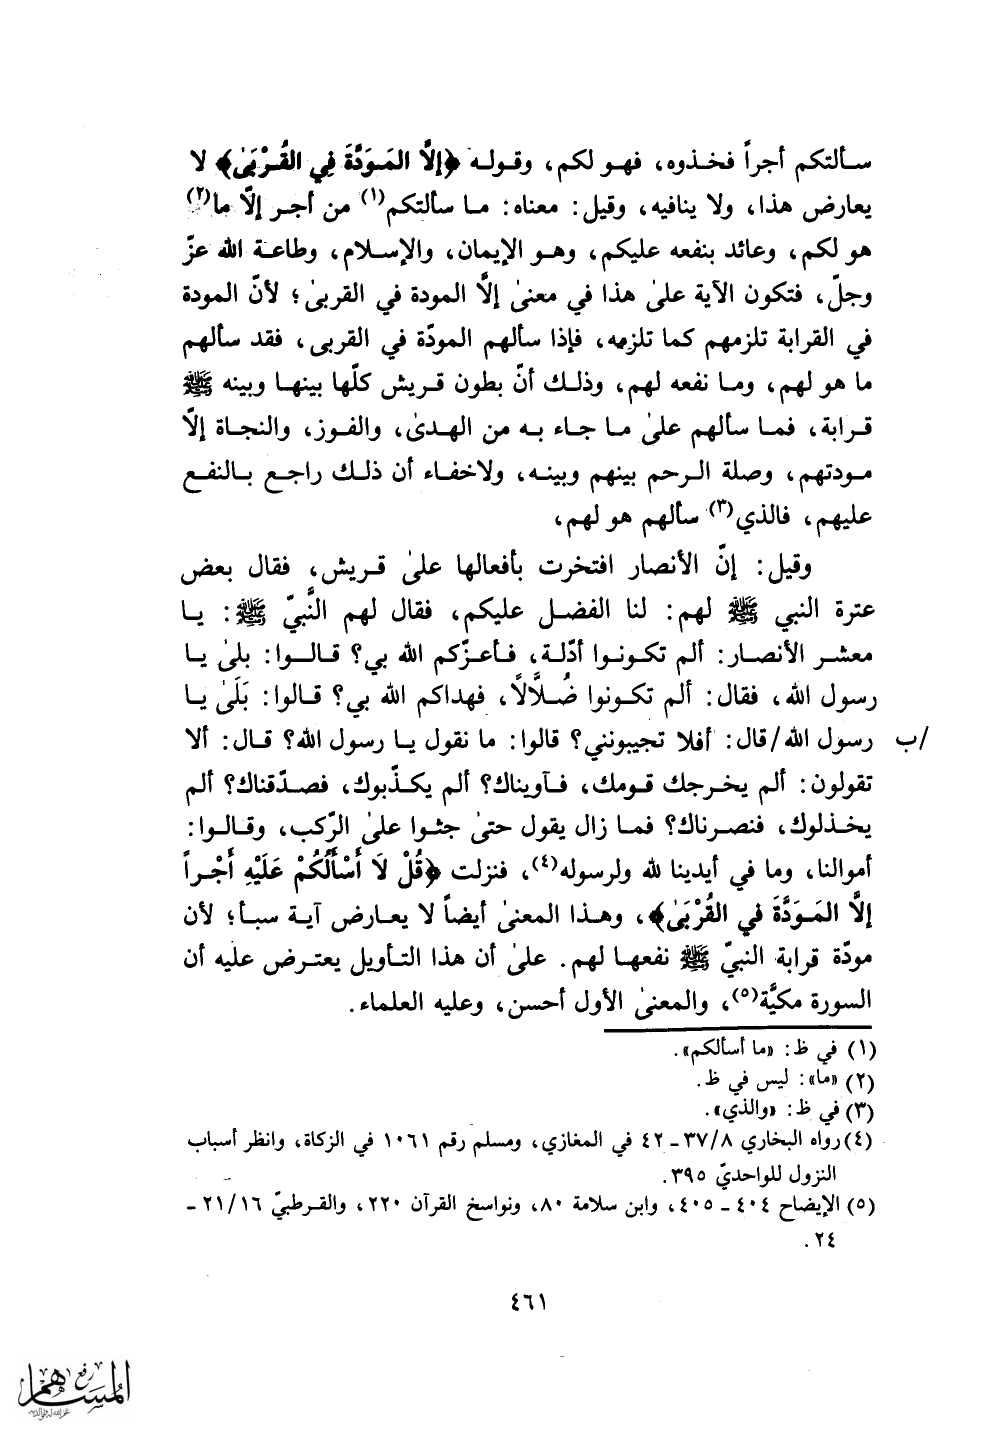 سألتكم أجراً فخذوه، فهو لكم، وقوله ﴿إلَّا المَوَدَّةَ فِي القُرْبَىٰ﴾ لا
يعارض هذا، ولا ينافيه، وقيل: معناه: ما سألتكم(١) من أجر إلّا ما(٢)
هو لكم، وعائد بنفعه عليكم، وهو الإيمان، والإسلام، وطاعة الله عزّ
وجلّ، فتكون الآية علىٰ هذا في معنىٰ إلَّا المودة في القربىٰ؛ لأنّ المودة
في القرابة تلزمهم كما تلزمه، فإذا سألهم المودّة في القربى، فقد سألهم
ما هو لهم، وما نفعه لهم، وذلك أنّ بطون قريش كلّها بينها وبينه ﷺ
قرابة، فما سألهم علىٰ ما جاء به من الهدىٰ، والفوز، والنجاة إلّا
مودتهم، وصلة الرحم بينهم وبينه، ولاخفاء أن ذلك راجع بالنفع
عليهم، فالذي(٣) سألهم هو لهم،
وقيل: إنّ الأنصار افتخرت بأفعالها علىٰ قريش، فقال بعض
عترة النبي ﷺ لهم: لنا الفضل عليكم، فقال لهم النَّبيّ ﷺ: يا
معشر الأنصار: ألم تكونوا أذّلة، فأعزّكم الله بي؟ قالوا: بلىٰ يا
رسول الله، فقال: ألم تكونوا ضُلَّالًا، فهداكم الله بي؟ قالوا: بَلَىٰ يا
/ب رسول الله/قال: أفلا تجيبونني؟ قالوا: ما نقول يا رسول الله؟ قال: ألا
تقولون: ألم يخرجك قومك، فآويناك؟ ألم يكذّبوك، فصدّقناك؟ ألم
يخذلوك، فنصرناك؟ فما زال يقول حتىٰ جثوا علىٰ الرّكب، وقالوا:
أموالنا، وما في أيدينا لله ولرسوله(٤)، فنزلت ﴿قُلْ لَا أَسْأَلُكُمْ عَلَيْهِ أَجْراً
إلَّا المَوَدَّةَ في القُرْبَىٰ﴾، وهذا المعنىٰ أيضاً لا يعارض آية سبأ؛ لأن
مودّة قرابة النبيّ ﷺ نفعها لهم. علىٰ أن هذا التأويل يعترض عليه أن
السورة مكيَّة(٥)، والمعنىٰ الأول أحسن، وعليه العلماء.
(١) في ظ: «ما أسألكم».
(٢) «ما»: ليس في ظ.
(٣) في ظ: «والذي».
(٤) رواه البخاري ٣٧/٨ ـ ٤٢ في المغازي، ومسلم رقم ١٠٦١ في الزكاة، وانظر أسباب
النزول للواحديّ ٣٩٥.
(٥) الإيضاح ٤٠٤ ـ ٤٠٥، وابن سلامة ٨٠، ونواسخ القرآن ٢٢٠، والقرطبيّ ٢١/١٦ ـ
٢٤.
٤٦١